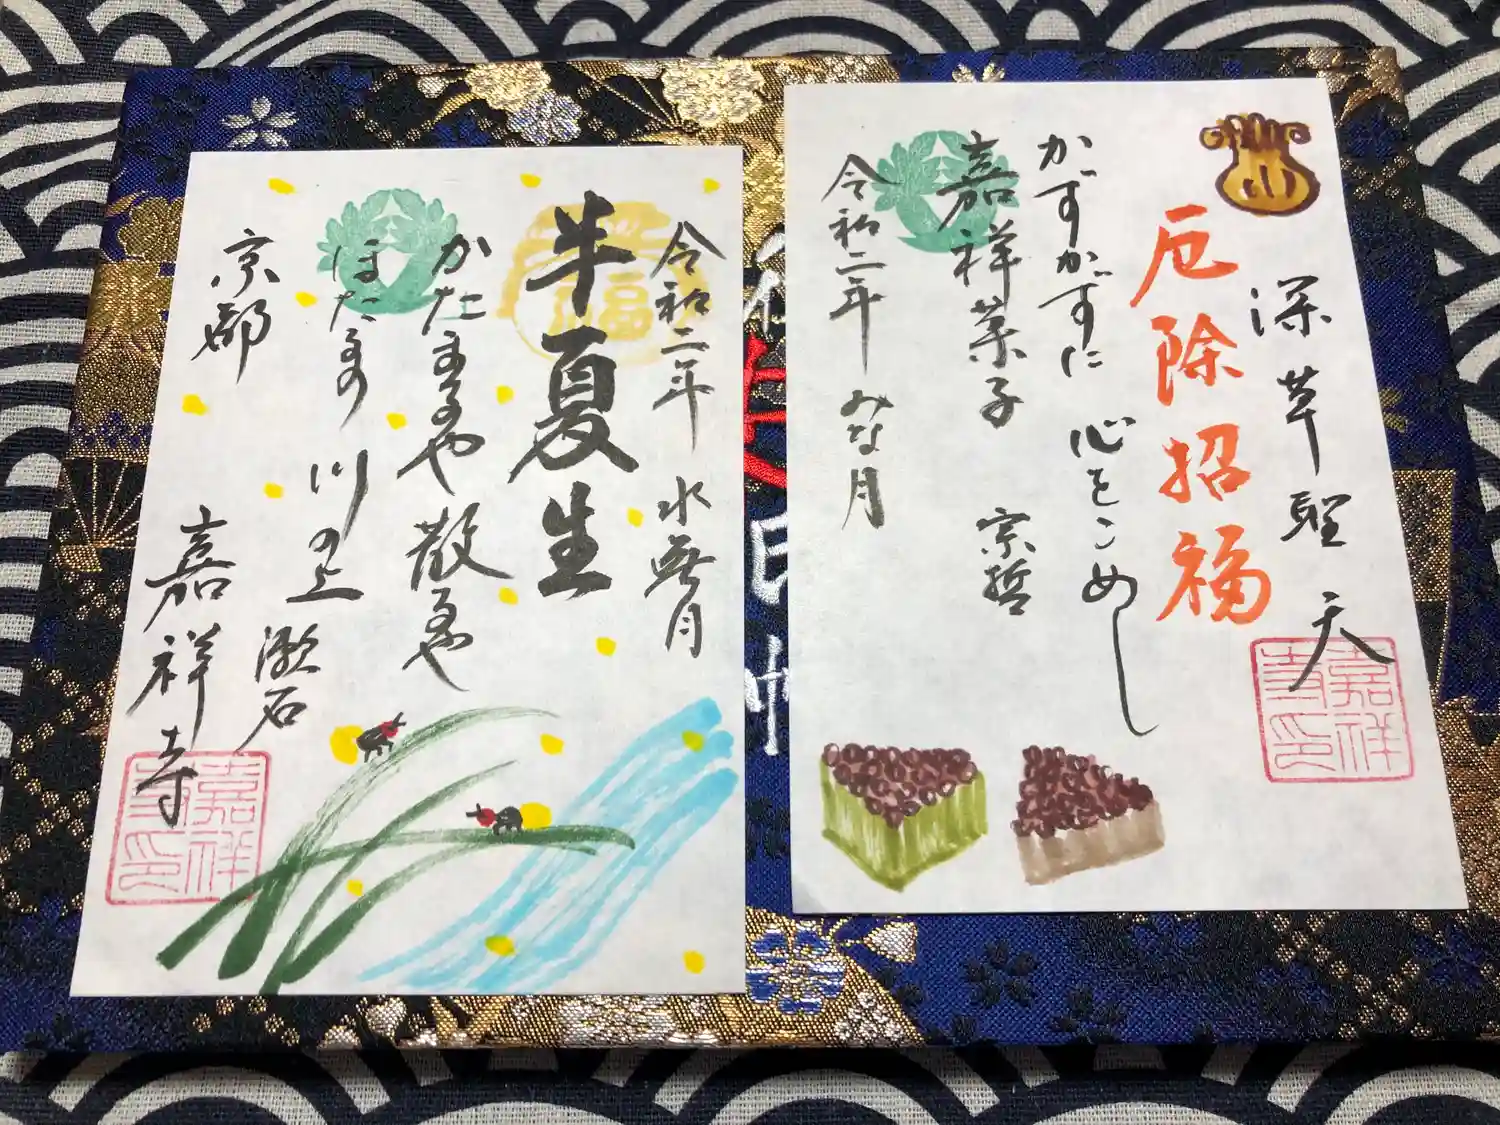 深草聖天
厄除招福
かずかずに 心をこめし
嘉祥菓子 宗哲
令和二年 みな月
嘉祥寺印
令和二年 水無月
半夏生
福
かたまるや散るや
ほたるの川の上
漱石
京都 嘉祥寺
嘉祥寺印